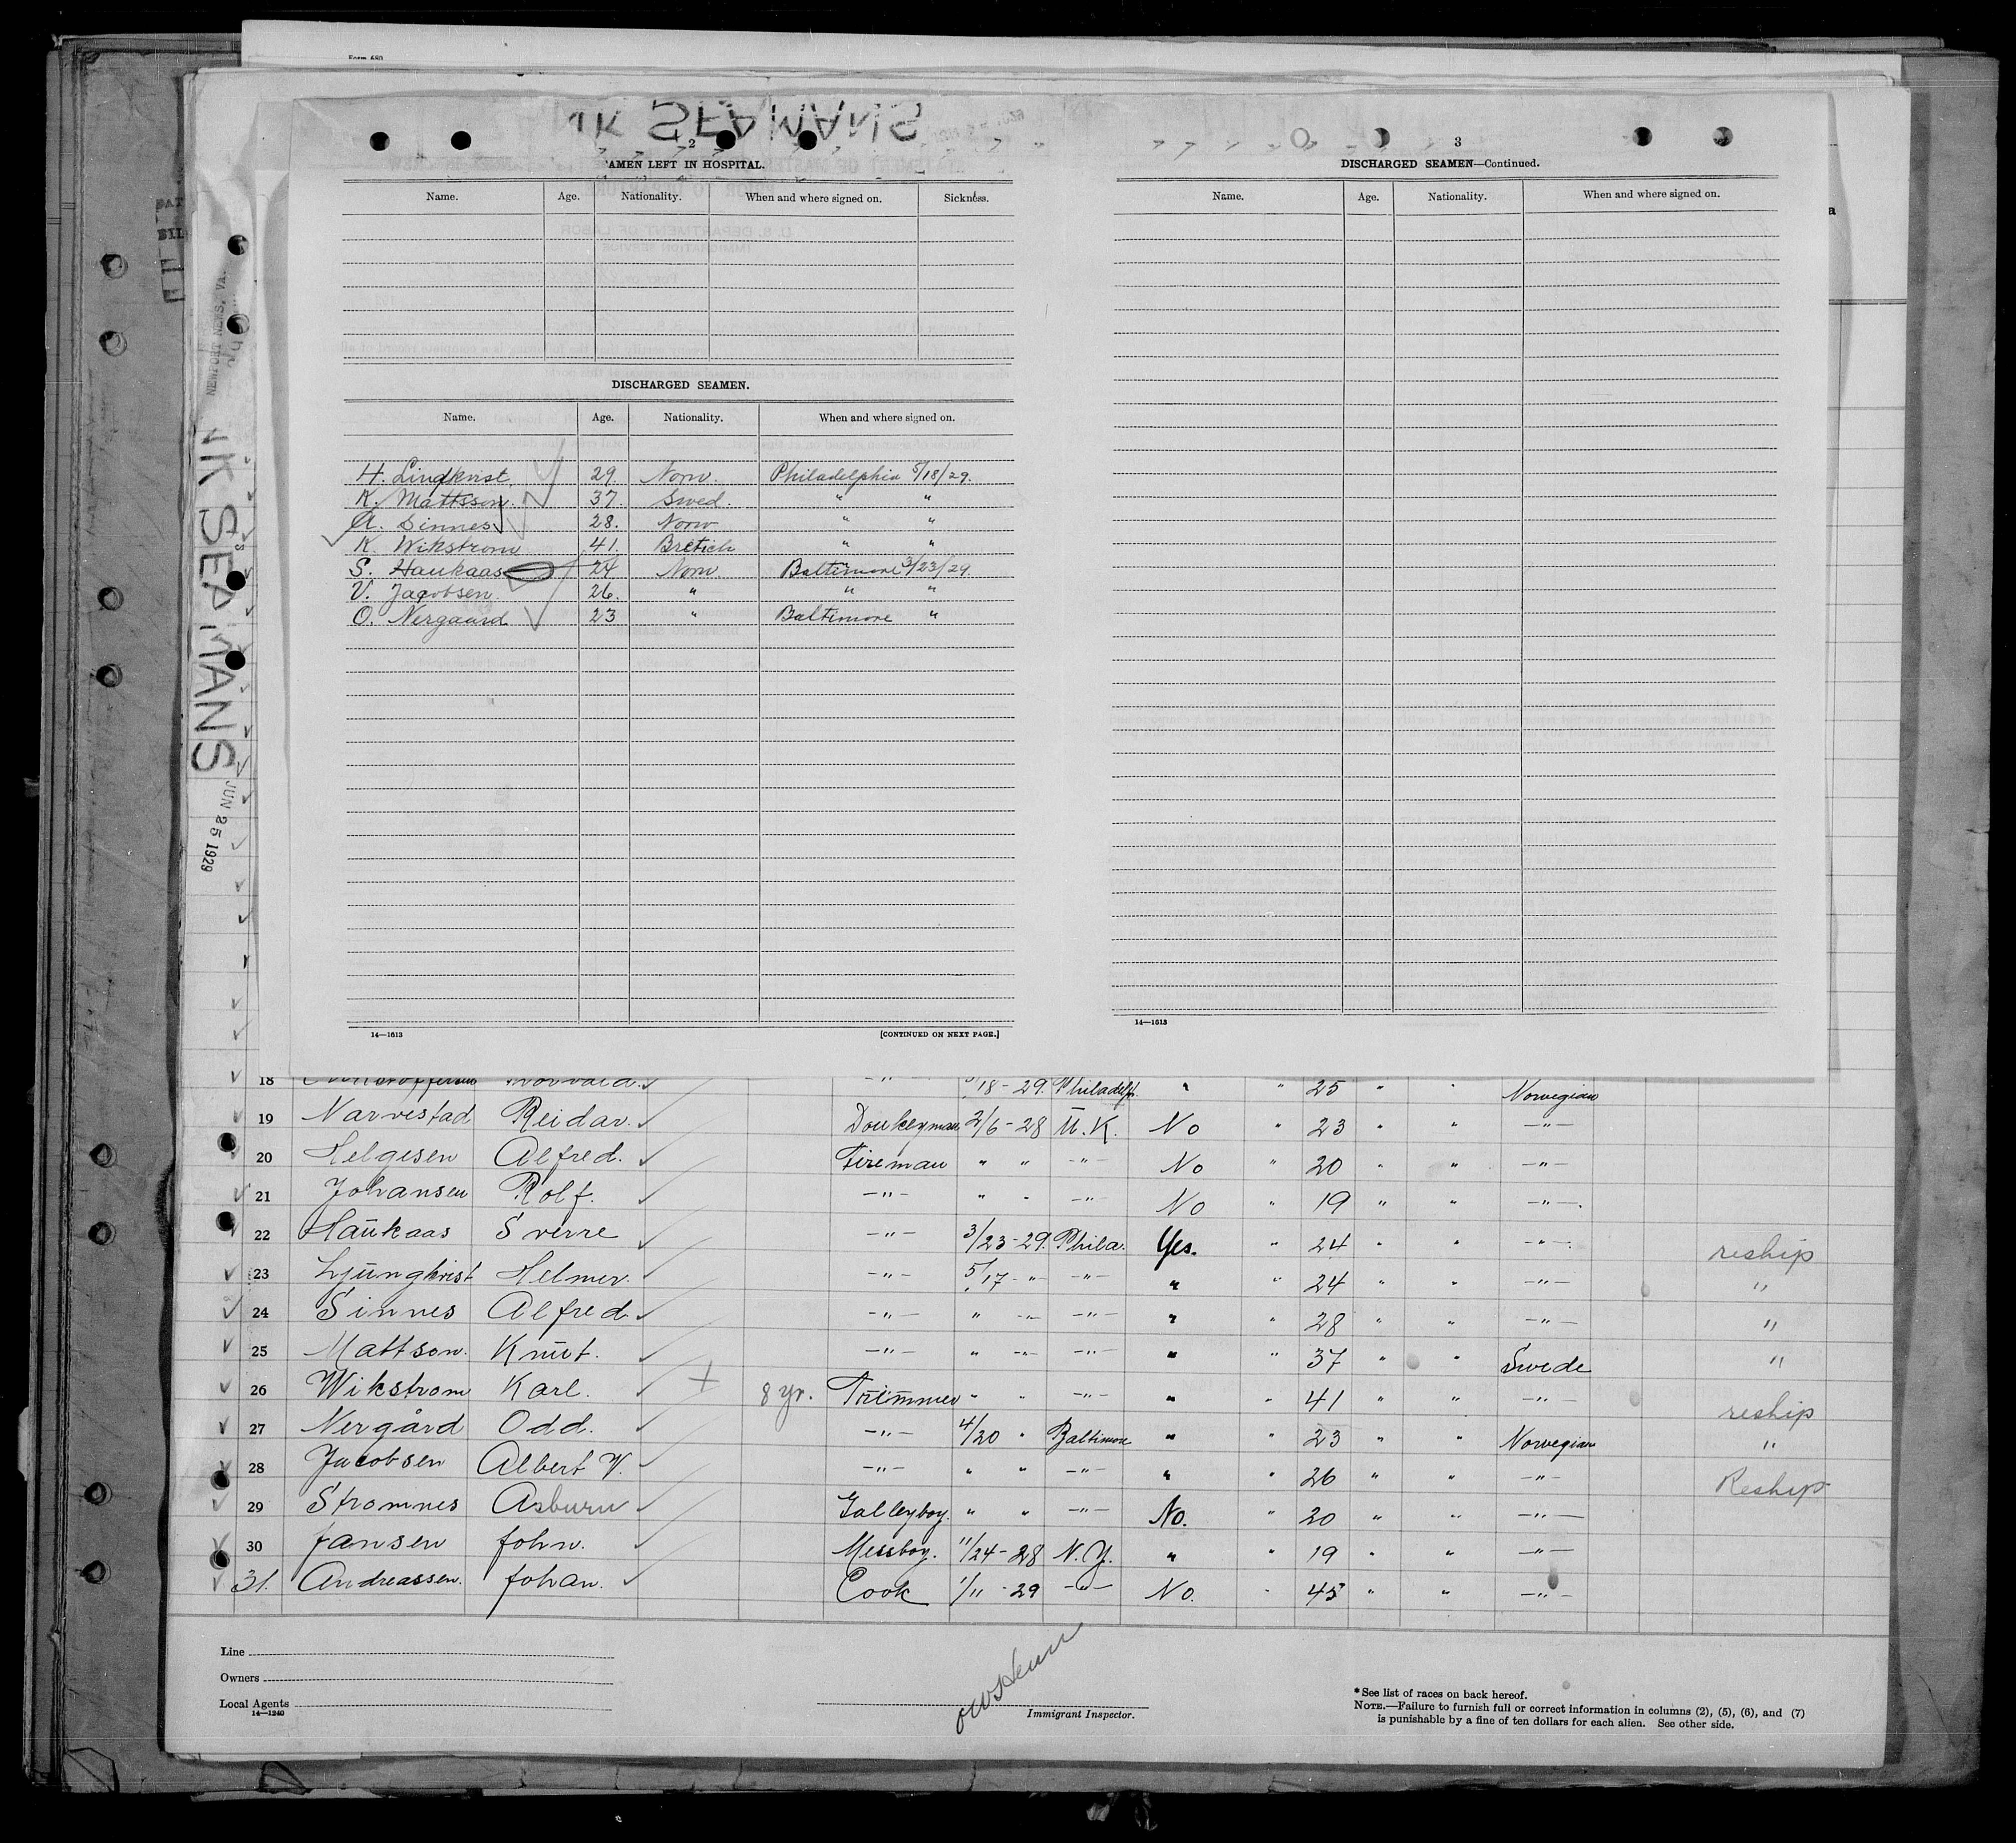 Form 680
NK SEAMANS
2
AMEN LEFT IN HOSPITAL.
Name. Age. Nationality. When and where signed on. Sickness.
DISCHARGED SEAMEN.
Name. Age. Nationality. When and where signed on.
H. Lindkvist 29. Norw. Philadelphia 5/18/29.
K. Mattsson. 37. Swed. " "
A. Sinnes 28. Norw " "
K. Wikstrom 41. Bretich " "
S. Haukaas 24 Norw. Baltimore 3/23/29.
V. Jacobsen. 26. " " "
O. Nergaard 23 " Baltimore "
14—1613 [CONTINUED ON NEXT PAGE.]
3
DISCHARGED SEAMEN—Continued.
Name. Age. Nationality. When and where signed on.
14—1613
NEWPORT NEWS, VA.
NK SEAMANS
JUN 25 1929
18 -"- 5/18-29. Philadelp. " " 25 " " Norwegian
19 Narvestad Reidar. Donkeyman 2/6-28 U.K. No " 23 " " -"-
20 Helgesen Alfred. Fireman " " -"- No " 20 " " -"-
21 Johansen Rolf. -"- " " -"- No " 19 " " -"-
22 Haukaas Sverre -"- 3/23-29. Phila. Yes. " 24 " " -"- reship
23 Ljungkvist Helmer. -"- 5/17-"- -"- " " 24 " " -"- "
24 Sinnes Alfred -"- " -"- -"- " " 28 " " -"- "
25 Mattson. Knut. -"- " -"- -"- " " 37 " " Swede "
26 Wikstrom Karl. + 8 yr. Trimmer " " -"- " " 41 " " -"- reship
27 Nergård Odd. -"- 4/20 " Baltimore " " 23 " " Norwegian "
28 Jacobsen Albert V. -"- " " -"- " " 26 " " -"- Reship
29 Stromnes Asburn Galleyboy. " " -"- No. " 20 " " -"-
30 Jansen John. Messboy. 11/24-28 N.Y. " " 19 " " -"-
31. Andreassen. Johan. Cook 1/11-29 -"- No. " 45 " " -"-
Line
Owners
Local Agents
14—1240
Immigrant Inspector.
*See list of races on back hereof.
NOTE.—Failure to furnish full or correct information in columns (2), (5), (6), and (7)
is punishable by a fine of ten dollars for each alien. See other side.